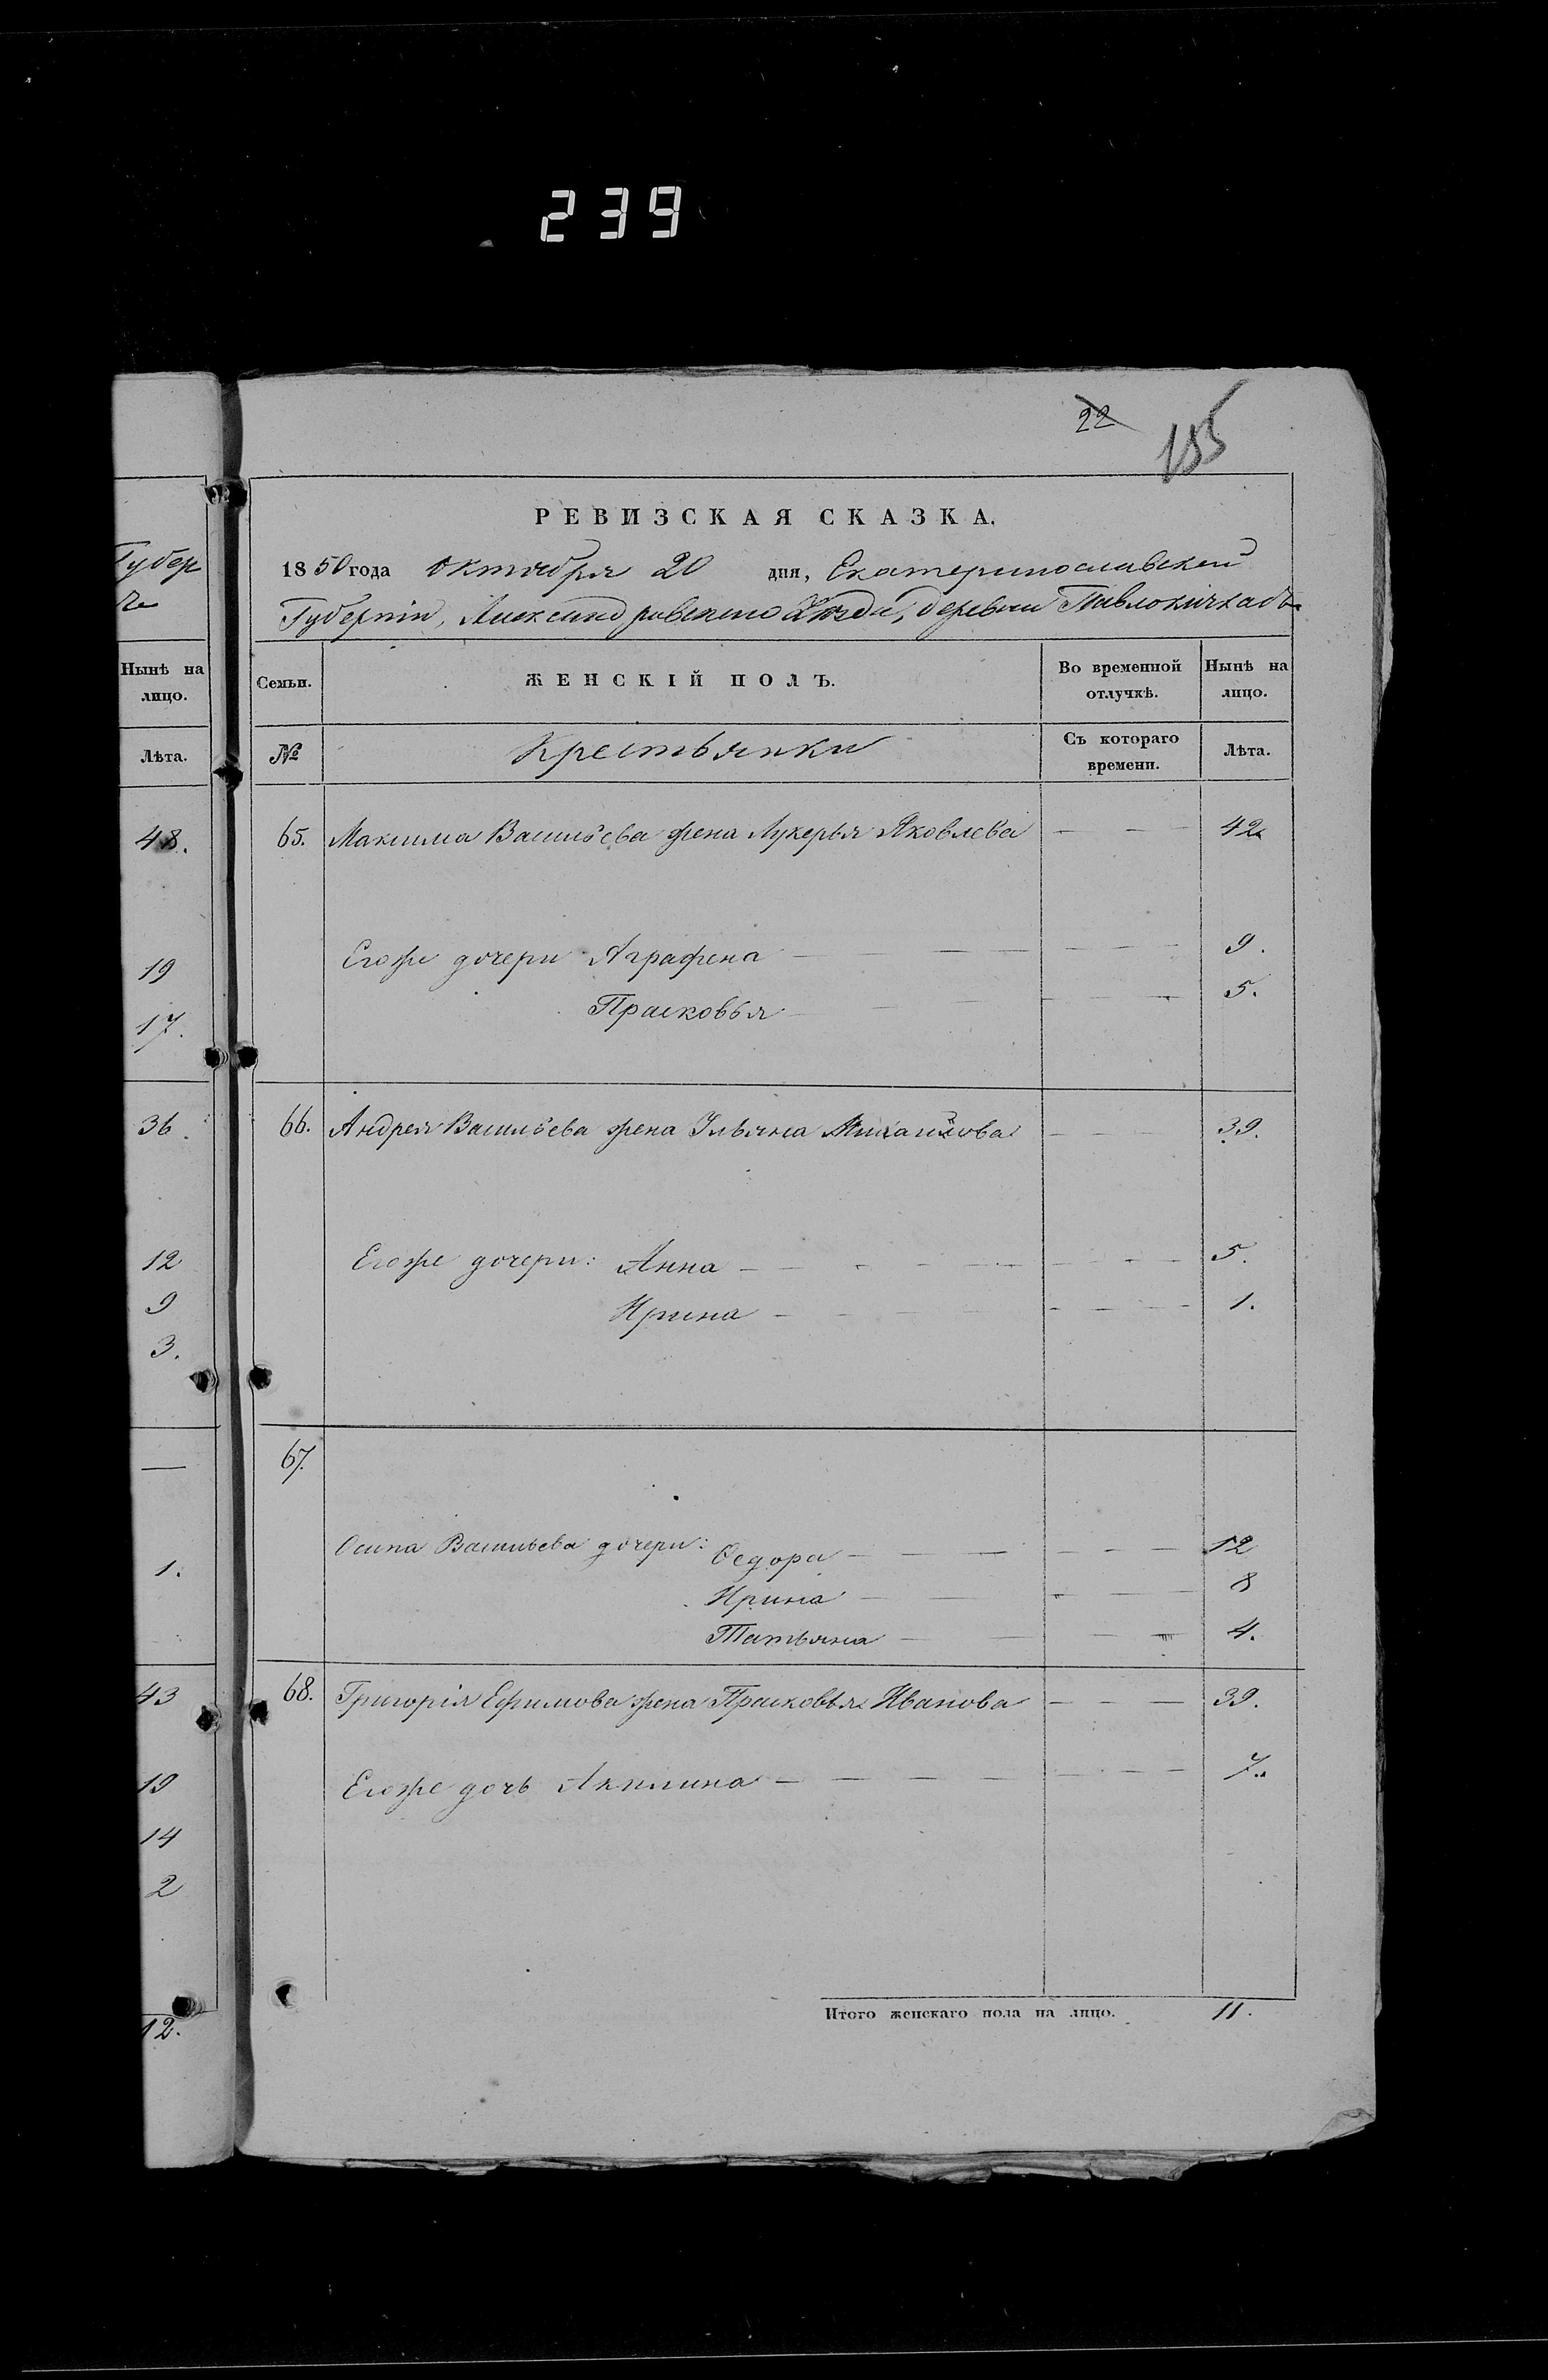 239
22
155
РЕВИЗСКАЯ СКАЗКА.
1850 года Октября 20 дня, Екатеринославской
Губерніи, Александровскаго Уѣзда, деревни Павлокичкасъ
Семьи. ЖЕНСКІЙ ПОЛЪ. Во временной отлучкѣ. Нынѣ на лицо.
№ Крестьянки Съ котораго времени. Лѣта.
65. Максима Васильева жена Лукерья Яковлева — — 42
Егоже дочери Аграфена — — — — — 9.
Прасковья — — — — — 5.
66. Андрея Васильева жена Ульяна Михайлова — — — 39.
Егоже дочери: Анна — — — — — — — 5.
Ирина — — — — — — — 1.
67.
Осипа Васильева дочери: Федора — — — — — — 12
Ирина — — — — 8
Татьяна — — — — 4.
68. Григорія Ефимова жена Прасковья Иванова — — — 39.
Егоже дочь Акилина — — — — — — — 7.
Итого женскаго пола на лицо. 11.
Губер
Нынѣ на
лицо.
Лѣта.
48.
19
17.
36.
12
9
3.
—
1.
43
19
14
2
12.